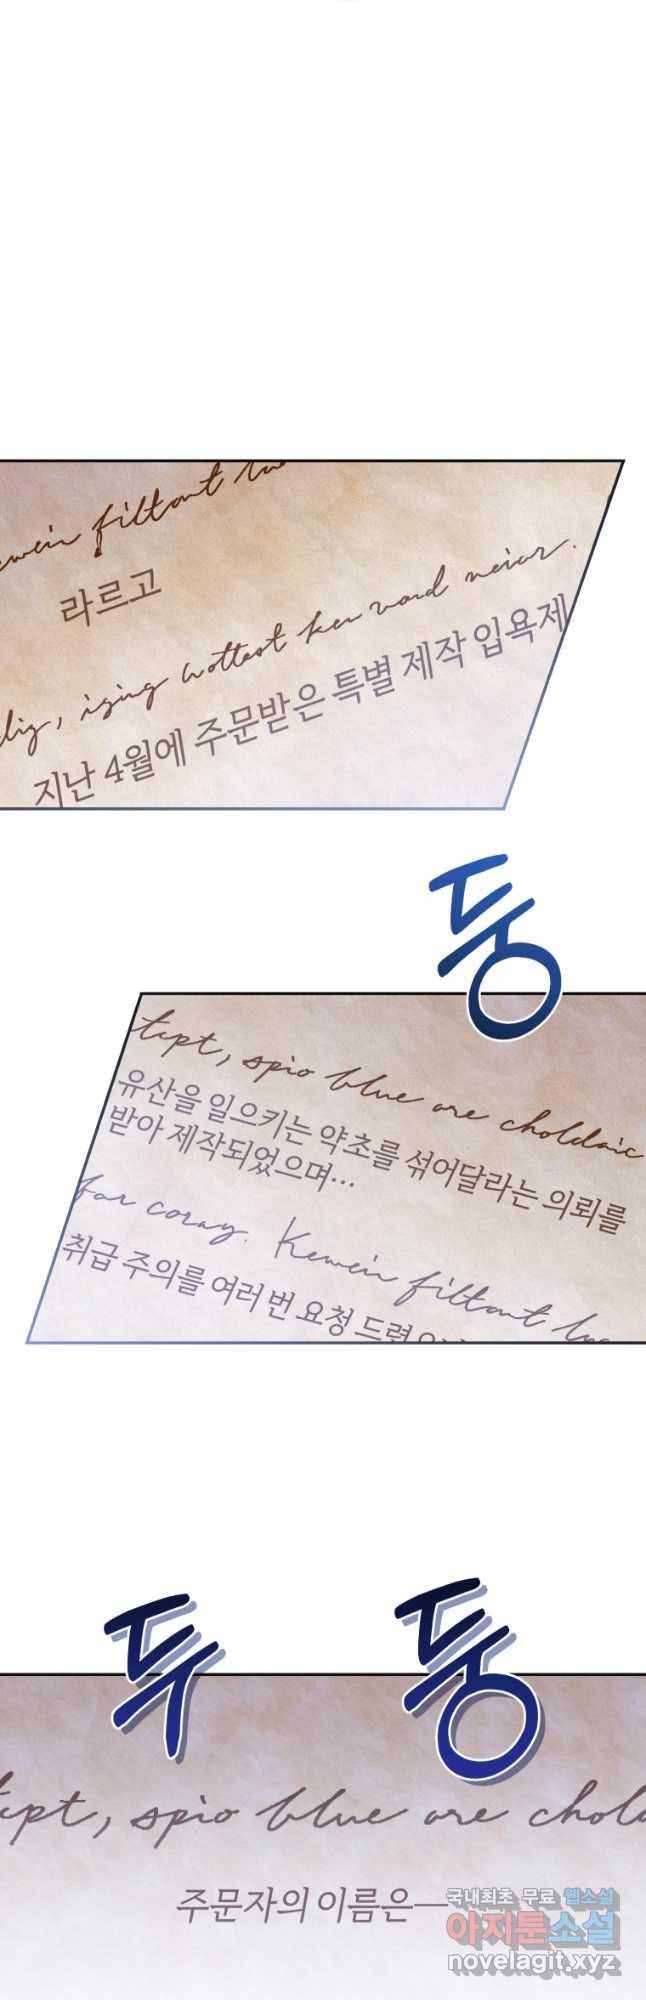 Kewein filtont lus
라르고
iging wottest ken vond neior.
지난 4월에 주문받은 특별 제작 입욕제
둥
tept, spio blue are choldaic
유산을 일으키는 약초를 섞어달라는 의뢰를
받아 제작되었으며...
for coray. Kewein filtont lus
취급 주의를 여러 번 요청 드렸
두 둥
tept, spio blue are chold
주문자의 이름은—
국내최초 무료 웹소설
아지툰소설
novelagit.xyz